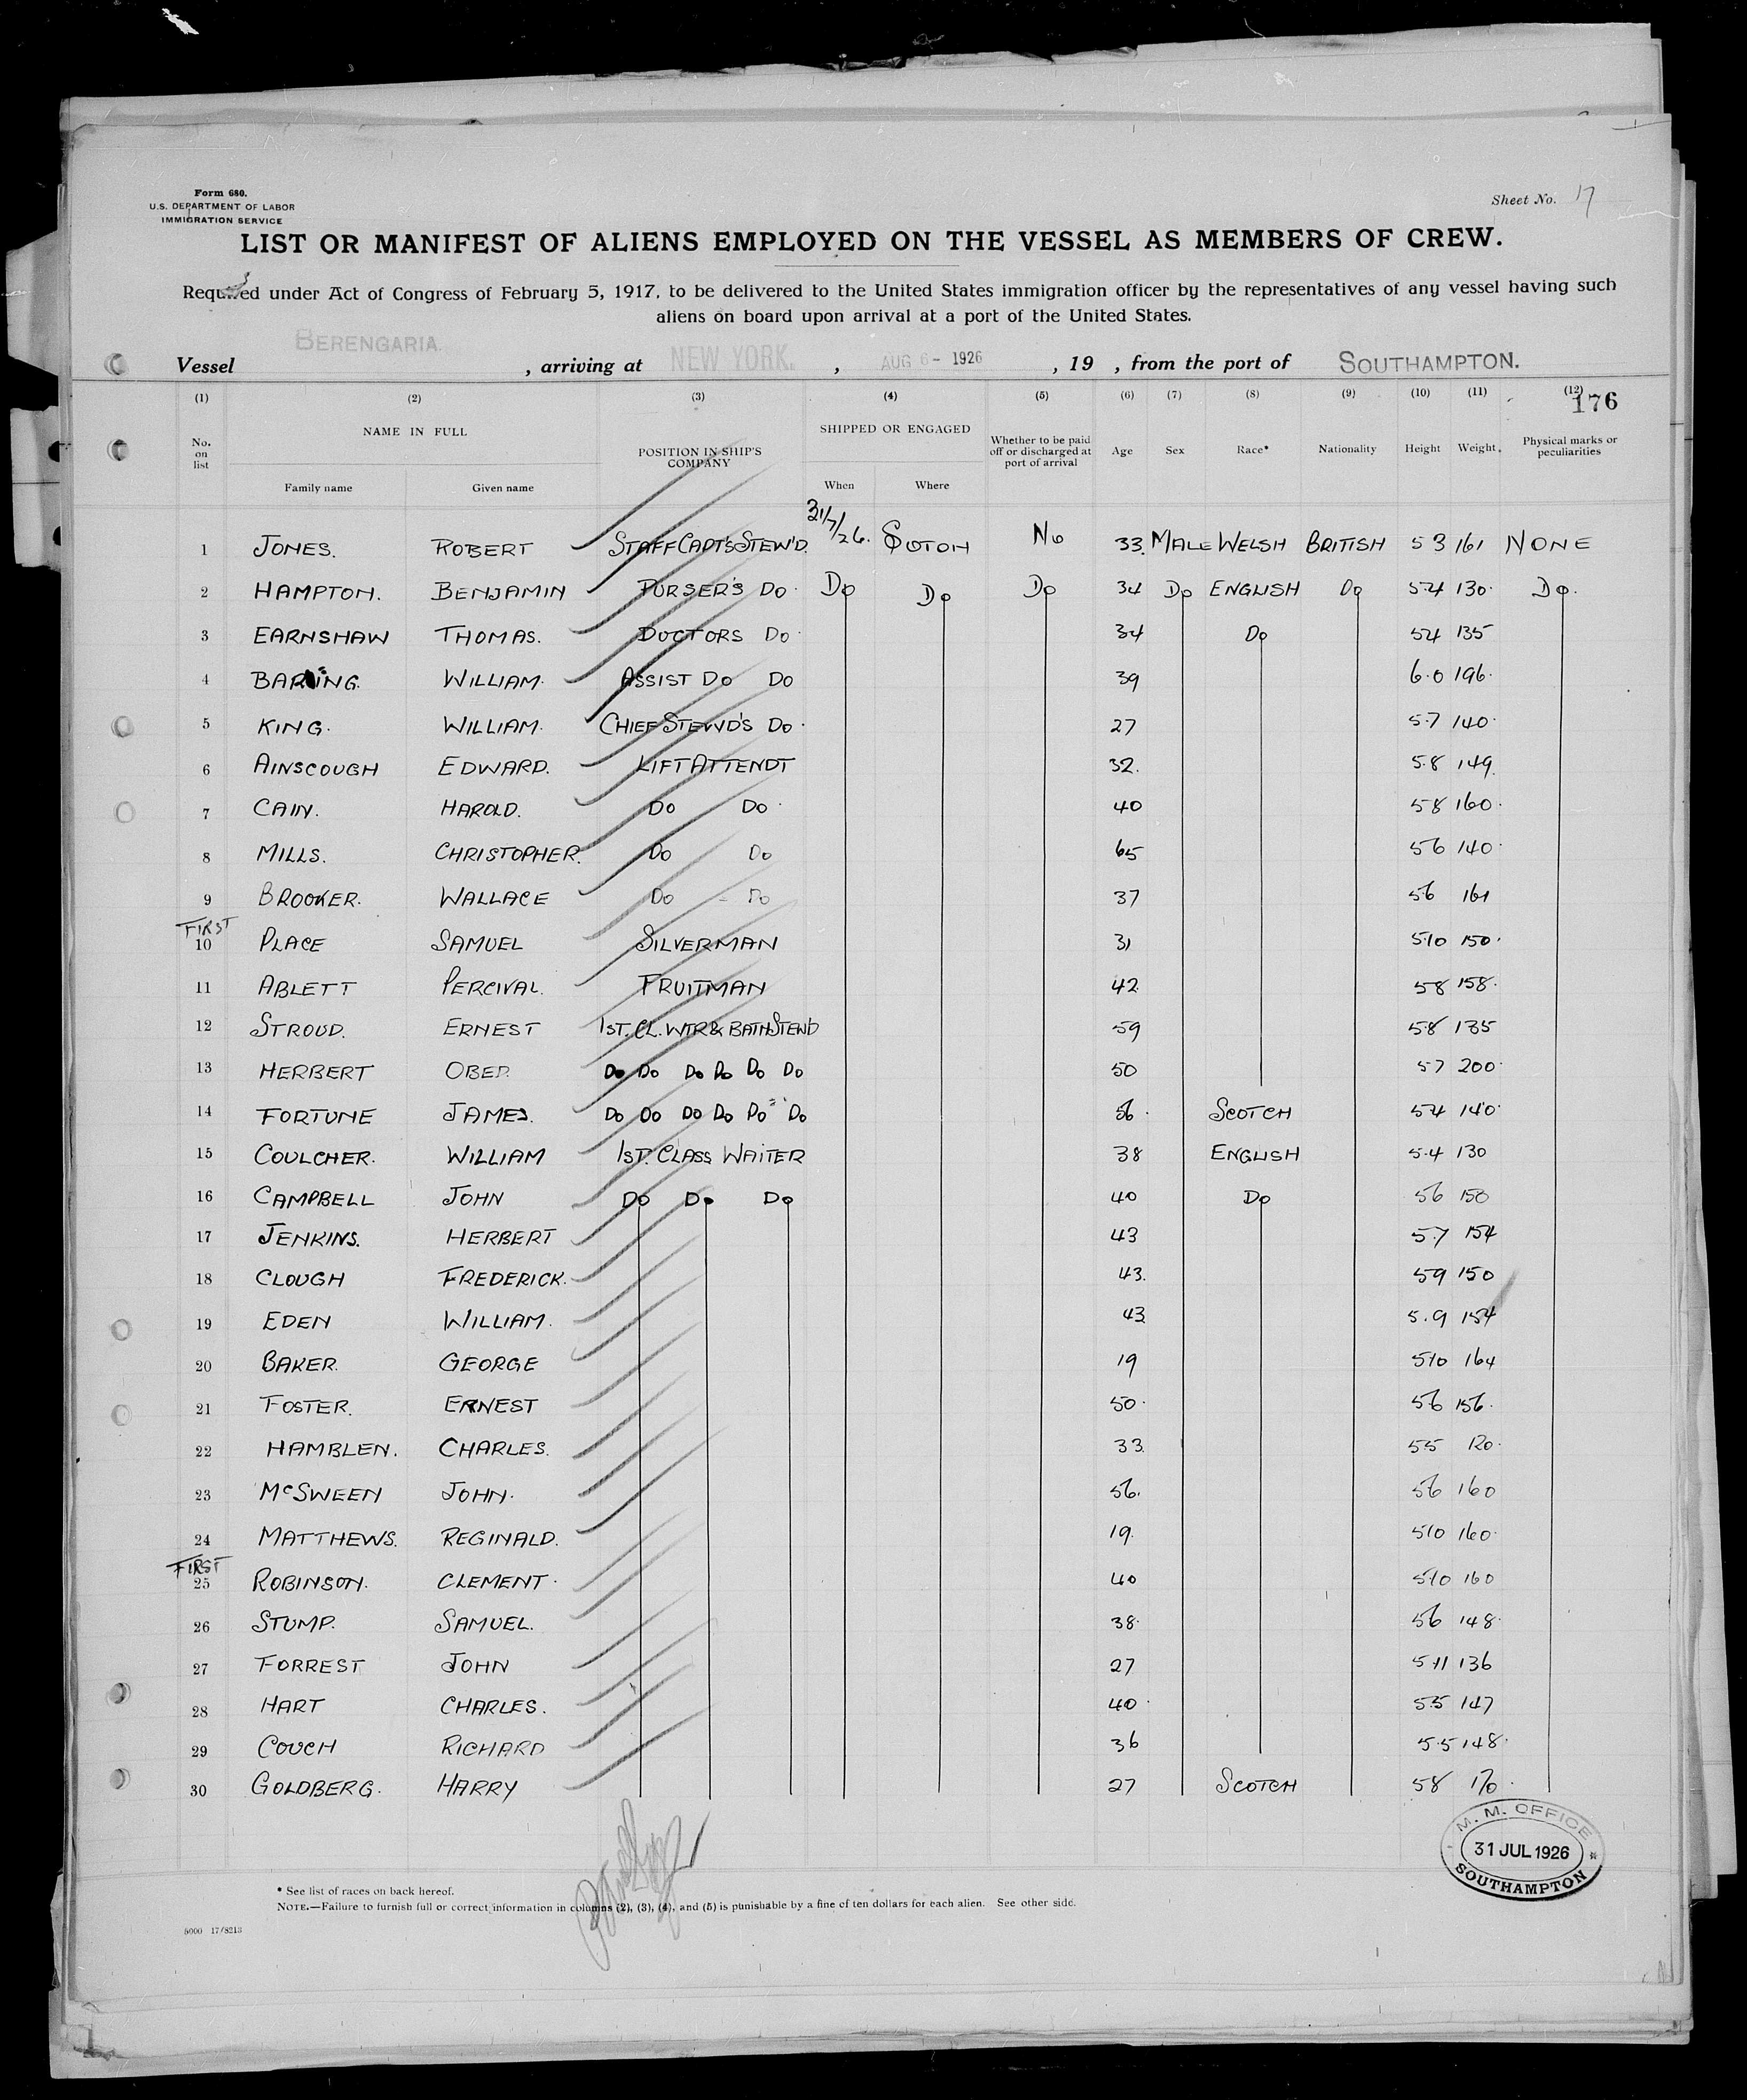 Form 680.
U.S. DEPARTMENT OF LABOR
IMMIGRATION SERVICE
Sheet No. 17
LIST OR MANIFEST OF ALIENS EMPLOYED ON THE VESSEL AS MEMBERS OF CREW.
Required under Act of Congress of February 5, 1917, to be delivered to the United States immigration officer by the representatives of any vessel having such
aliens on board upon arrival at a port of the United States.
Vessel BERENGARIA. , arriving at NEW YORK. , AUG 6 - 1926 , 19 , from the port of SOUTHAMPTON.
(1) (2) (3) (4) (5) (6) (7) (8) (9) (10) (11) (12)
176
No. on list NAME IN FULL POSITION IN SHIP'S COMPANY SHIPPED OR ENGAGED Whether to be paid off or discharged at port of arrival Age Sex Race* Nationality Height Weight. Physical marks or peculiarities
Family name Given name When Where
1 JONES. ROBERT STAFF CAPT'S STEW'D. 31/7/26. SOTON No 33. MALE WELSH BRITISH 5 3 161 NONE
2 HAMPTON. BENJAMIN PURSER'S DO. DO DO DO 34 DO ENGLISH DO 5.4 130. DO.
3 EARNSHAW THOMAS. DOCTORS DO. 34 DO 54 135
4 WILLIAM. ASSIST DO DO 39 6.0 196.
5 KING. WILLIAM. CHIEF STEWD'S DO. 27 5.7 140.
6 AINSCOUGH EDWARD. LIFT ATTENDT 32. 5.8 149.
7 CAIN. HAROLD. DO DO. 40 58 160.
8 MILLS. CHRISTOPHER. DO DO 65 56 140.
9 BROOKER. WALLACE DO DO 37 56 161
FIRST
10 PLACE SAMUEL SILVERMAN 31 510 150.
11 ABLETT PERCIVAL. FRUITMAN 42 58 158.
12 STROUD. ERNEST 1ST. CL. WTR & BATH STEWD 59 58 135
13 HERBERT OBED. DO DO DO DO DO DO 50 57 200.
14 FORTUNE JAMES. DO DO DO DO DO DO 56. SCOTCH 54 140.
15 COULCHER. WILLIAM 1ST. CLASS WAITER 38 ENGLISH 5.4 130
16 CAMPBELL JOHN DO DO DO 40 DO 56 150
17 JENKINS. HERBERT 43 5.7 154
18 CLOUGH FREDERICK. 43. 59 150
19 EDEN WILLIAM. 43 5.9 154
20 BAKER. GEORGE 19 510 164
21 FOSTER. ERNEST 50. 56 156.
22 HAMBLEN. CHARLES. 33. 55 120.
23 McSWEEN JOHN. 56. 56 160
24 MATTHEWS. REGINALD. 19. 510 160.
FIRST
25 ROBINSON. CLEMENT. 40 510 160
26 STUMP. SAMUEL. 38. 56 148.
27 FORREST JOHN 27 511 136
28 HART CHARLES. 40. 5.5 147
29 COUCH RICHARD 36 5.5 148.
30 GOLDBERG. HARRY 27 SCOTCH 58 170.
M. M. OFFICE
31 JUL 1926
SOUTHAMPTON
* See list of races on back hereof.
NOTE.—Failure to furnish full or correct information in columns (2), (3), (4), and (5) is punishable by a fine of ten dollars for each alien. See other side.
5000 17/8213